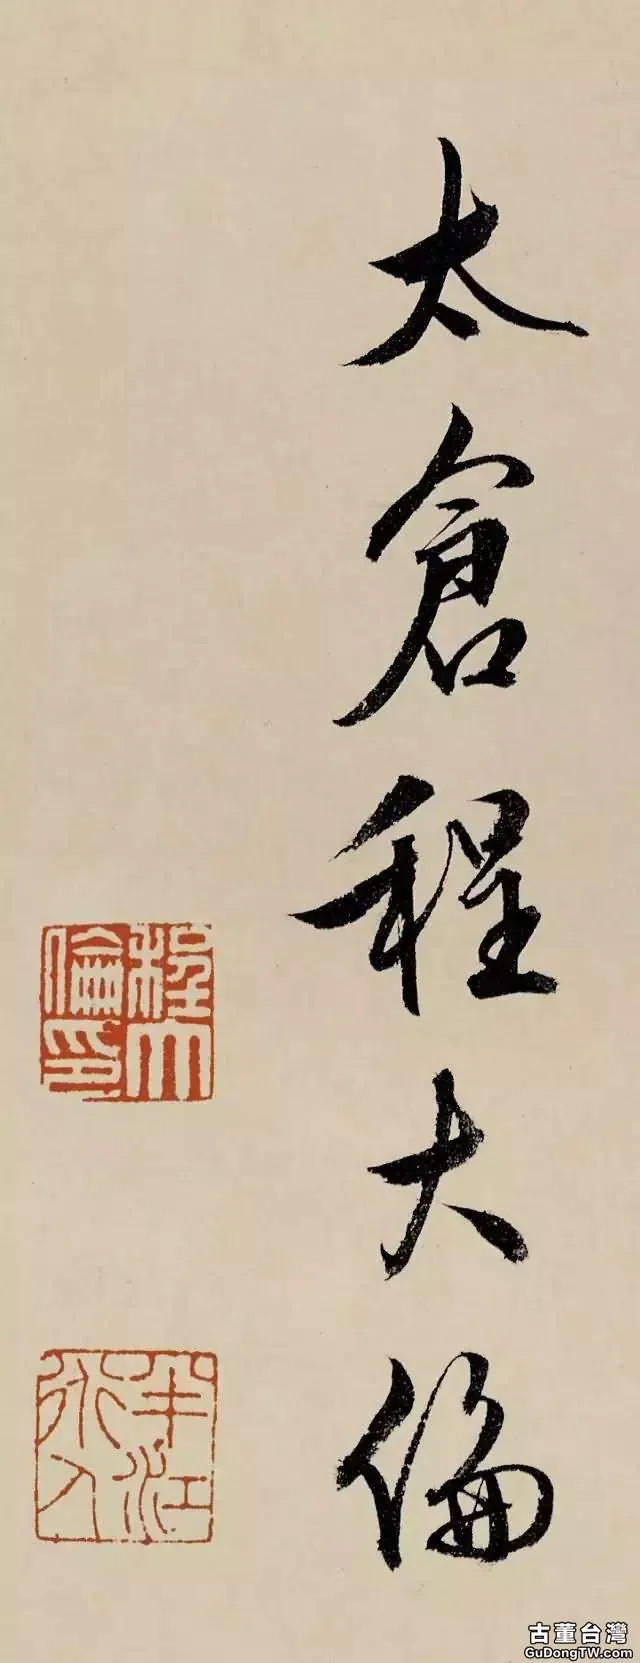 太倉程大倫
程大
倫印
半江
古董台灣
GuDongTW.com